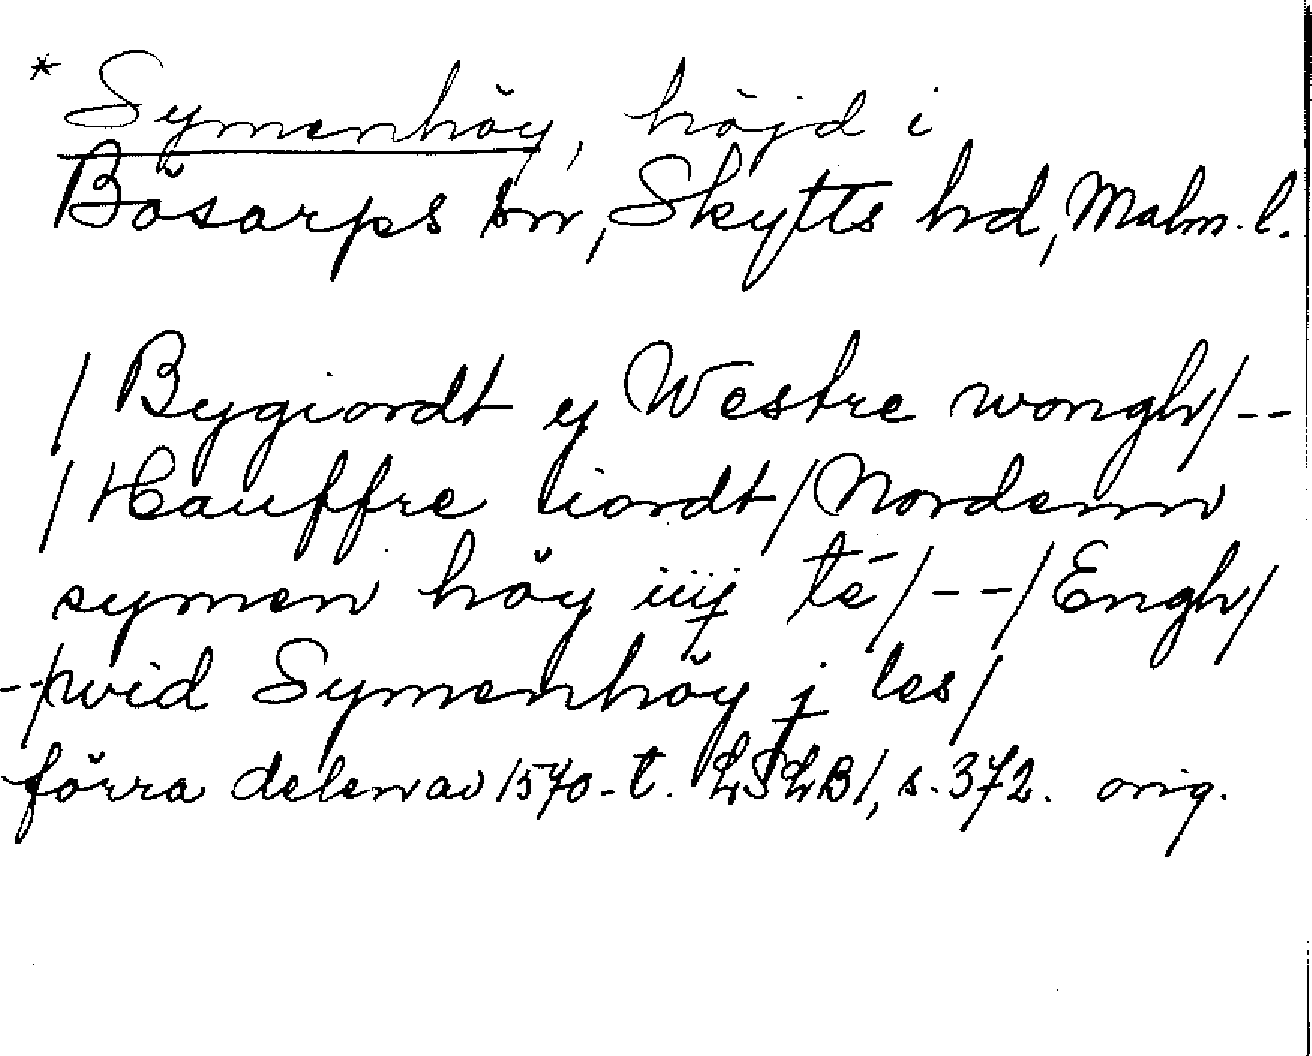 * Symenhöy, höjd i
Bösarps sn, Skytts hd, Malm. l.
/ Bygiordt y Westre wongh/--
/Hauffre iordt/Nordenn
symen höy iiij té/--/Engh/
--/wid Symenhöy j les/
förra delen av 1570-t. LSLB1, s. 372. orig.